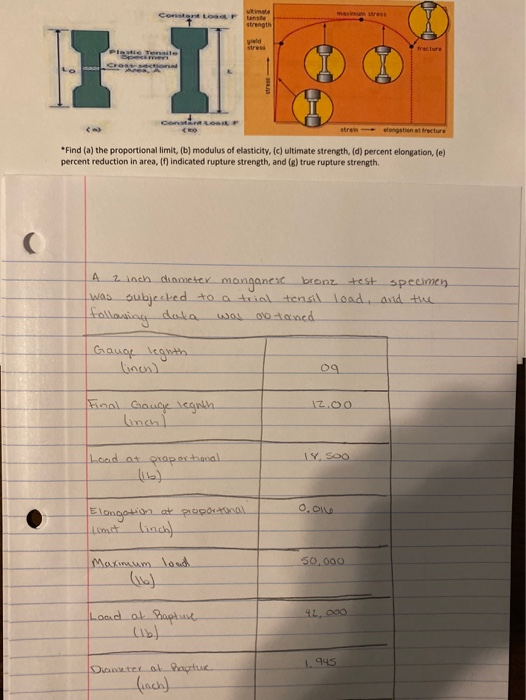 Constant Load, F
Plastic Tensile
Specimen
Cross-sectional
Area, A
Lo
L
Constant Load, F
(a)
(b)
ultimate
tensile
strength
yield
stress
maximum stress
fracture
stress
strain
elongation at fracture
*Find (a) the proportional limit, (b) modulus of elasticity, (c) ultimate strength, (d) percent elongation, (e)
percent reduction in area, (f) indicated rupture strength, and (g) true rupture strength.
A 2 inch diameter manganese bronz test specimen
was subjected to a trial tensil load, and the
following data was obtaned
Gauge legnth
(inch)
09
Final Gauge legnth
(inch)
12.00
Load at proportional
(lb)
18,500
Elongation at proportional
limit (inch)
0.016
Maximum load
(lb)
50,000
Load at Rapture
(lb)
42,000
Diameter at Rapture
(inch)
1.945